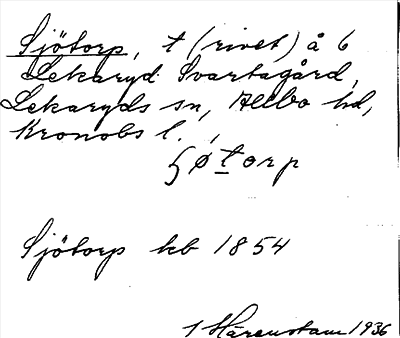 Sjötorp, t (rivet) å 6
Lekaryd Svartagård,
Lekaryds sn, Allbo hd,
Kronobs l.
ʃø̀torp
Sjötorp kb 1854
1 Härenstam 1936